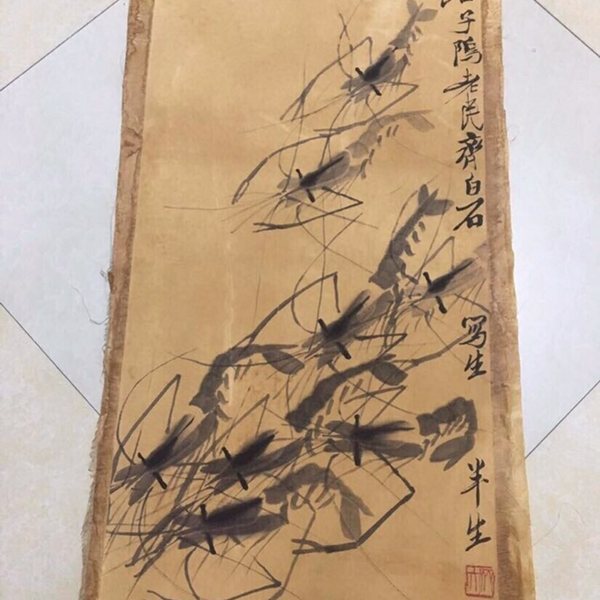 子隖老民齊白石 写生 半生